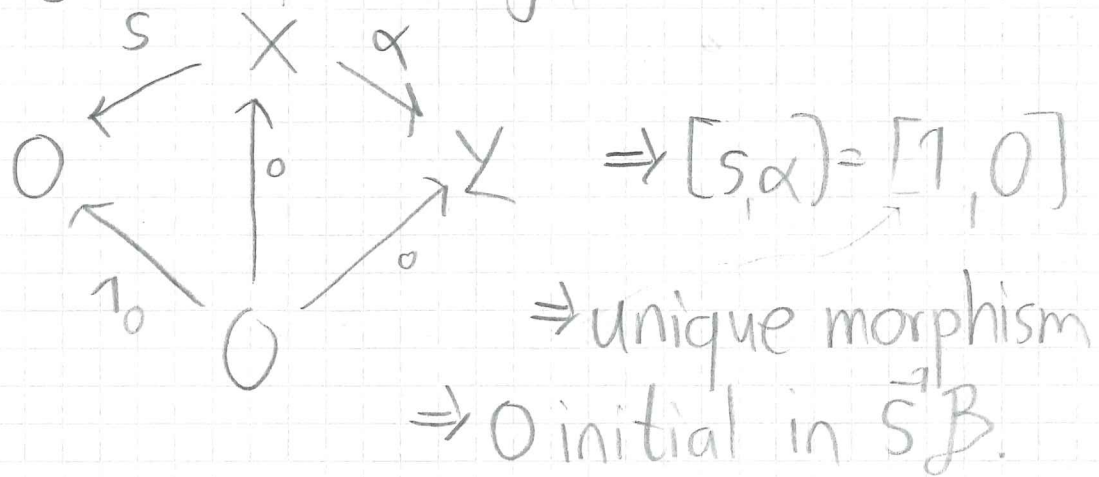 S X α
0 0 Y ⇒ [s,α) = [1,0]
1₀ 0 0 ⇒ unique morphism
⇒ 0 initial in S⁻¹B.